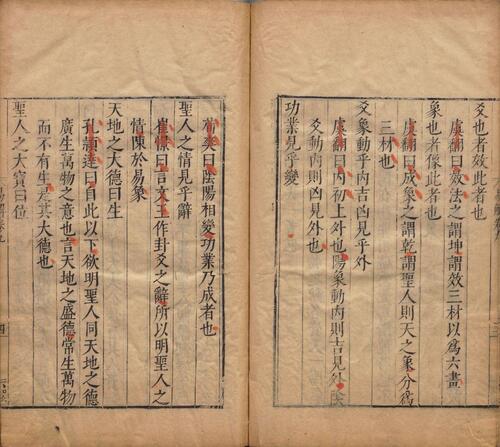 爻也者效此者也
虞翻曰效法之謂坤謂效三材以爲六畫
象也者像此者也
虞翻曰成象之謂乾謂聖人則天之象分爲
三材也
爻象動乎內吉凶見乎外
虞翻曰內初上外也陽象動內則吉見外陰
爻動內則凶見外也
功業見乎變
荀爽曰陰陽相變功業乃成者也
聖人之情見乎辭
崔憬曰言文王作卦爻之辭所以明聖人之
情陳於易象
天地之大德曰生
孔穎達曰自此以下欲明聖人同天地之德
廣生萬物之意也言天地之盛德常生萬物
而不有生是其大德也
聖人之大寶曰位